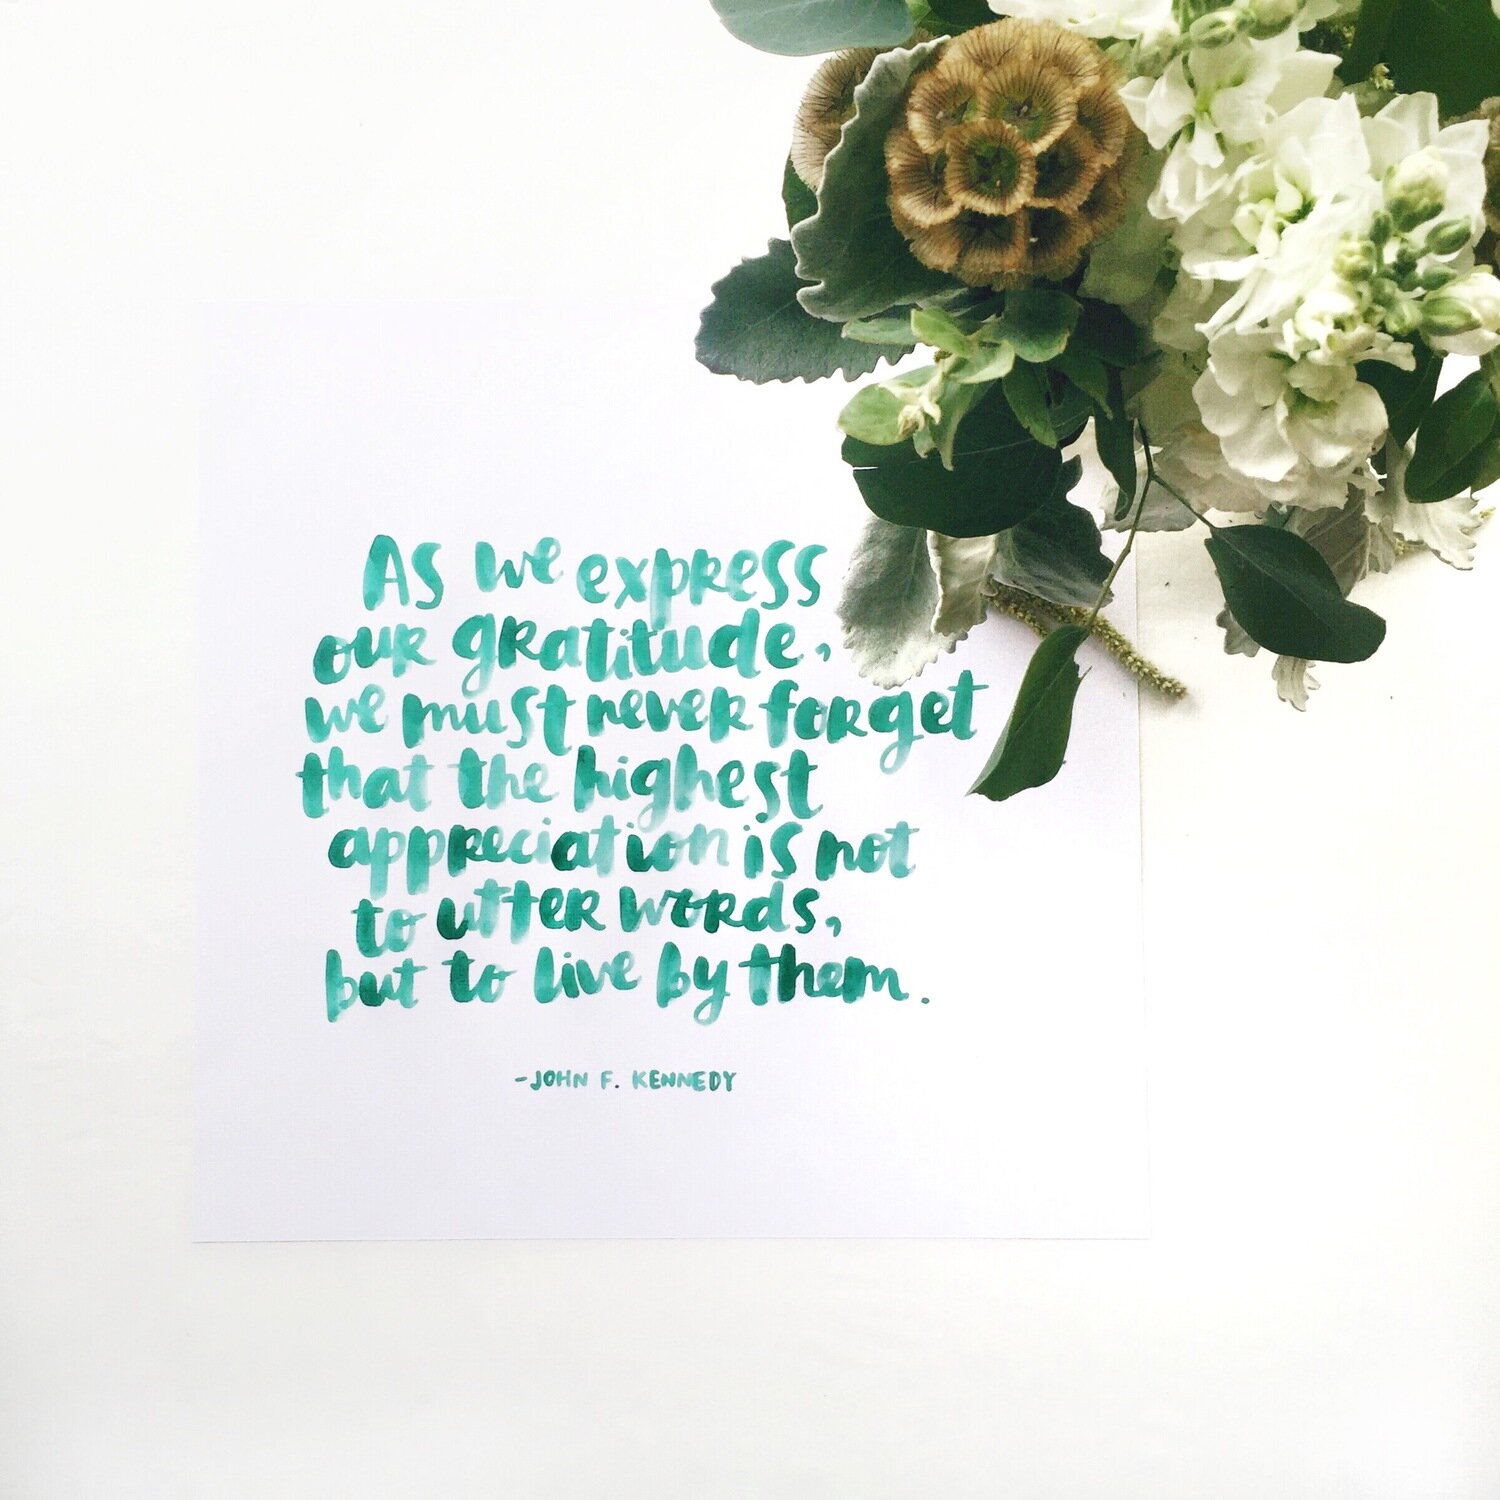 As we express
our gratitude,
we must never forget
that the highest
appreciation is not
to utter words,
but to live by them.
-JOHN F. KENNEDY